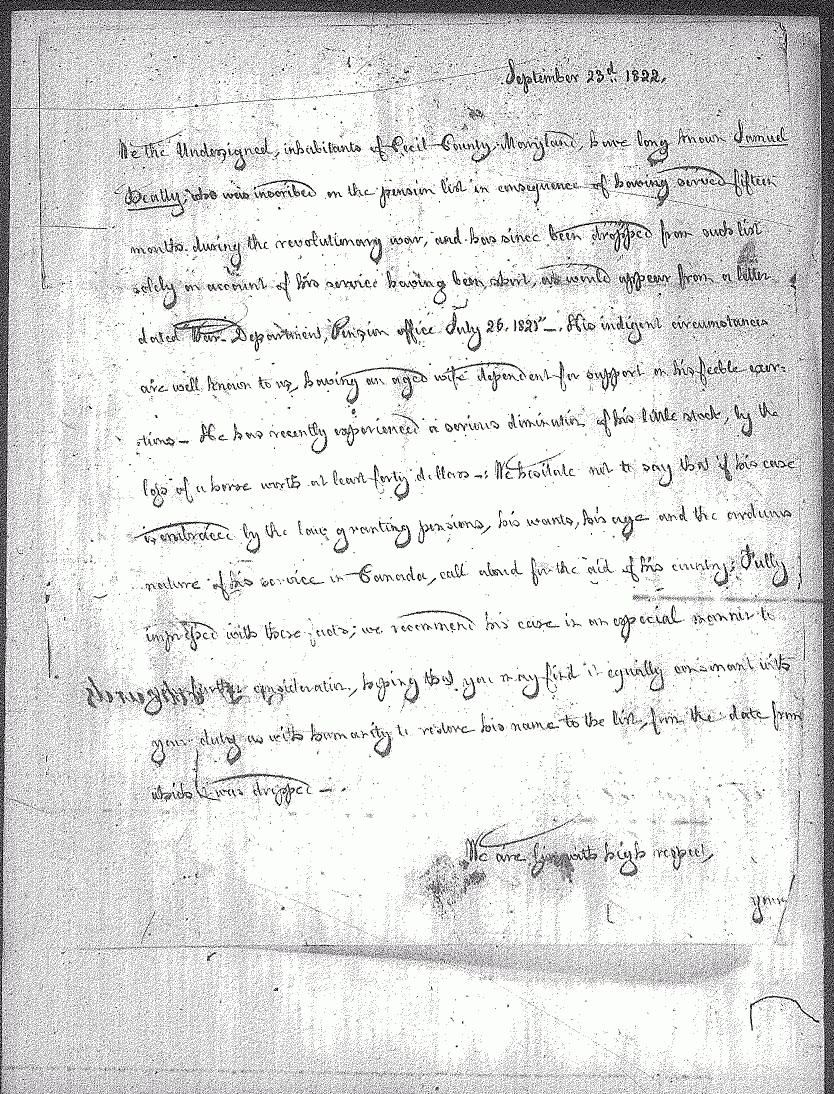 September 23d. 1822.
We the Undersigned, inhabitants of Cecil County Maryland, have long known Samuel
Beatty, who was inscribed on the pension list in consequence of having served fifteen
months during the revolutionary war, and has since been dropped from such list
solely on account of his service having been short, as would appear from a letter
dated War Department, Pension office July 26. 182 . His indigent circumstances
are well known to us, having an aged wife dependent for support on his feeble exer-
tions - He has recently experienced a serious diminution of his little stock, by the
loss of a horse worth at least forty dollars -: We hesitate not to say that if his case
is embraced by the law granting pensions, his wants, his age and the arduous
nature of his service in Canada, call aloud for the aid of his country; Fully
impressed with these facts; we recommend his case in an especial manner to
further consideration, hoping that you may find it equally consonant with
your duty as with humanity to restore his name to the list, from the date from
which it was dropped -.
We are Sir with high respect,
your